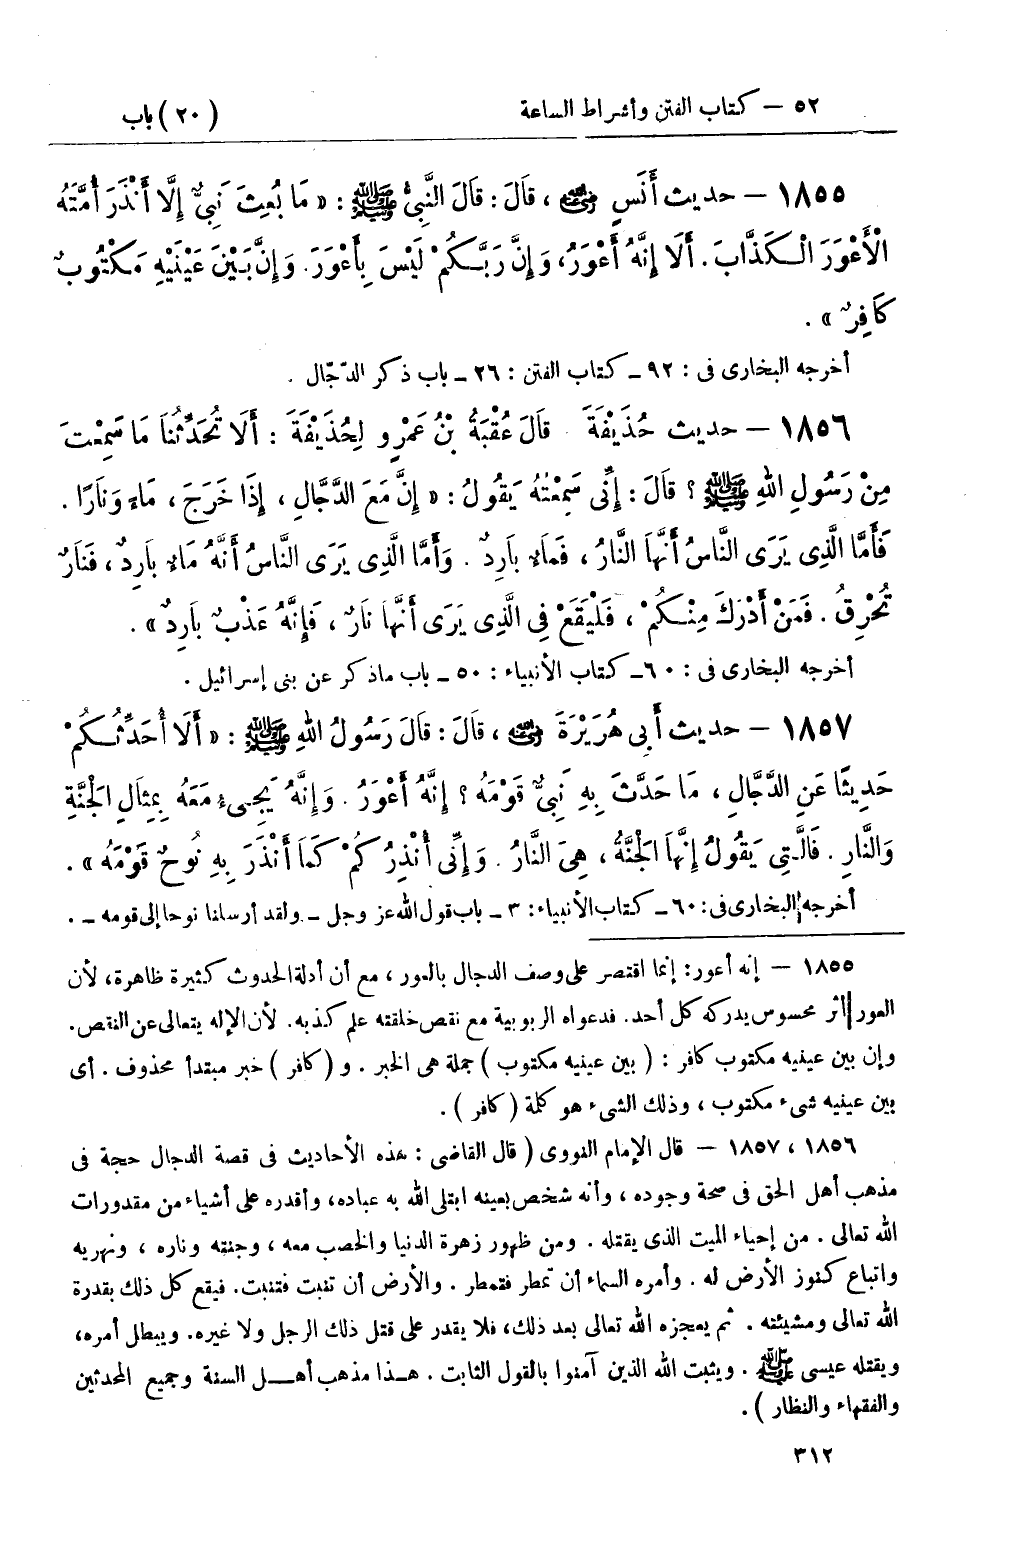 ٥٢ — كتاب الفتن وأشراط الساعة (٢٠) باب
١٨٥٥ — حديث أَنَسٍ رضي الله عنه ، قَالَ : قَالَ النَّبِيُّ ﷺ : « مَا بُعِثَ نَبِيٌّ إِلَّا أَنْذَرَ أُمَّتَهُ
الْأَعْوَرَ الْكَذَّابَ . أَلَا إِنَّهُ أَعْوَرُ ، وَإِنَّ رَبَّكُمْ لَيْسَ بِأَعْوَرَ . وَإِنَّ بَيْنَ عَيْنَيْهِ مَكْتُوبٌ
كَافِرٌ » .
أخرجه البخارى فى : ٩٢ ـ كتاب الفتن : ٢٦ ـ باب ذكر الدّجّال .
١٨٥٦ — حديث حُذَيْفَةَ قَالَ عُقْبَةُ بْنُ عَمْرٍو لِحُذَيْفَةَ : أَلَا تُحَدِّثُنَا مَا سَمِعْتَ
مِنْ رَسُولِ اللهِ ﷺ ؟ قَالَ : إِنِّى سَمِعْتُهُ يَقُولُ : « إِنَّ مَعَ الدَّجَّالِ ، إِذَا خَرَجَ ، مَاءً وَنَارًا .
فَأَمَّا الَّذِى يَرَى النَّاسُ أَنَّهَا النَّارُ ، فَمَاءٌ بَارِدٌ . وَأَمَّا الَّذِى يَرَى النَّاسُ أَنَّهُ مَاءٌ بَارِدٌ ، فَنَارٌ
تُحْرِقُ . فَمَنْ أَدْرَكَ مِنْكُمْ ، فَلْيَقَعْ فِى الَّذِى يَرَى أَنَّهَا نَارٌ ، فَإِنَّهُ عَذْبٌ بَارِدٌ » .
أخرجه البخارى فى : ٦٠ ـ كتاب الأنبياء : ٥٠ ـ باب ماذكر عن بنى إسرائيل .
١٨٥٧ — حديث أَبِى هُرَيْرَةَ رضي الله عنه ، قَالَ : قَالَ رَسُولُ اللهِ ﷺ : « أَلَا أُحَدِّثُكُمْ
حَدِيثًا عَنِ الدَّجَّالِ ، مَا حَدَّثَ بِهِ نَبِىٌّ قَوْمَهُ ؟ إِنَّهُ أَعْوَرُ . وَإِنَّهُ يَجِىءُ مَعَهُ بِمِثَالِ الْجَنَّةِ
وَالنَّارِ . فَالَّتِى يَقُولُ إِنَّهَا الْجَنَّةُ ، هِىَ النَّارُ . وَإِنِّى أُنْذِرُكُمْ كَمَا أَنْذَرَ بِهِ نُوحٌ قَوْمَهُ » .
أخرجه البخارى فى : ٦٠ ـ كتاب الأنبياء : ٣ ـ باب قول الله عز وجل ـ ولقد أرسلنا نوحا إلى قومه ـ .
١٨٥٥ — إنه أعور : إنما اقتصر على وصف الدجال بالعور ، مع أن أدلة الحدوث كثيرة ظاهرة ، لأن
العور أثر محسوس يدركه كل أحد . فدعواه الربوبية مع نقص خلقته علم كذبه . لأن الإله يتعالى عن النقص .
وإن بين عينيه مكتوب كافر : ( بين عينيه مكتوب ) جملة هى الخبر . و ( كافر ) خبر مبتدأ محذوف . أى
بين عينيه شىء مكتوب ، وذلك الشىء هو كلمة ( كافر ) .
١٨٥٦ ، ١٨٥٧ — قال الإمام النووى ( قال القاضى : هذه الأحاديث فى قصة الدجال حجة فى
مذهب أهل الحق فى صحة وجوده ، وأنه شخص بعينه ابتلى الله به عباده ، وأقدره على أشياء من مقدورات
الله تعالى . من إحياء الميت الذى يقتله . ومن ظهور زهرة الدنيا والخصب معه ، وجنته وناره ، ونهريه
واتباع كنوز الأرض له . وأمره السماء أن تمطر فتمطر . والأرض أن تنبت فتنبت . فيقع كل ذلك بقدرة
الله تعالى ومشيئته . ثم يعجزه الله تعالى بعد ذلك ، فلا يقدر على قتل ذلك الرجل ولا غيره . ويبطل أمره ،
ويقتله عيسى ﷺ . ويثبت الله الذين آمنوا بالقول الثابت . هذا مذهب أهل السنة وجميع المحدثين
والفقهاء والنظار ) .
٣١٢